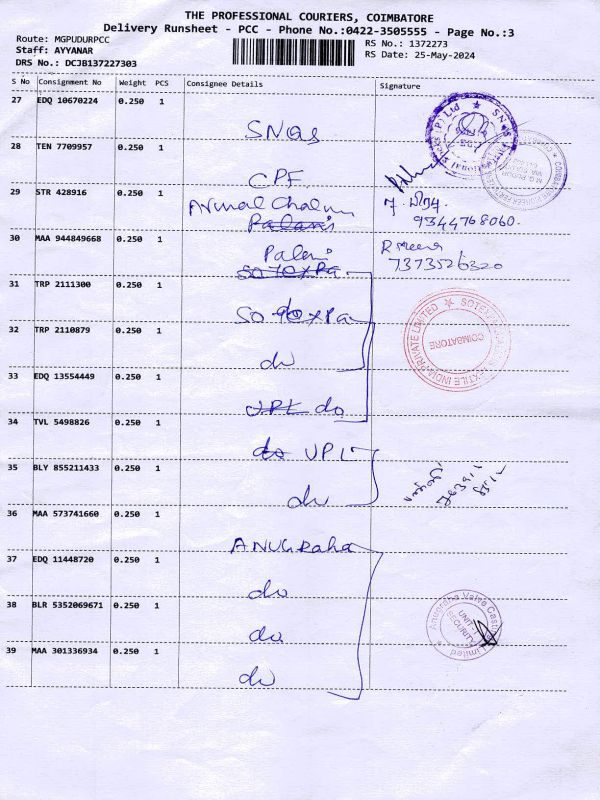 THE PROFESSIONAL COURIERS, COIMBATORE
Delivery Runsheet - PCC - Phone No.:0422-3505555 - Page No.:3
Route: MGPUDURPCC
Staff: AYYANAR
DRS No.: DCJB137227303
RS No.: 1372273
RS Date: 25-May-2024
S No Consignment No Weight PCS Consignee Details Signature
27 EDQ 10670224 0.250 1
SNQS
28 TEN 7709957 0.250 1
CPF
29 STR 428916 0.250 1
7373526320
9344768060.
30 MAA 944849668 0.250 1
Palani
31 TRP 2111300 0.250 1
do
32 TRP 2110879 0.250 1
do
COIMBATORE
33 EDQ 13554449 0.250 1
do
34 TVL 5498826 0.250 1
do UPL
35 BLY 855211433 0.250 1
do
36 MAA 573741660 0.250 1
ANUGRaha
37 EDQ 11448720 0.250 1
do
38 BLR 5352069671 0.250 1
do
UNIT-1
SECURITY
39 MAA 301336934 0.250 1
do